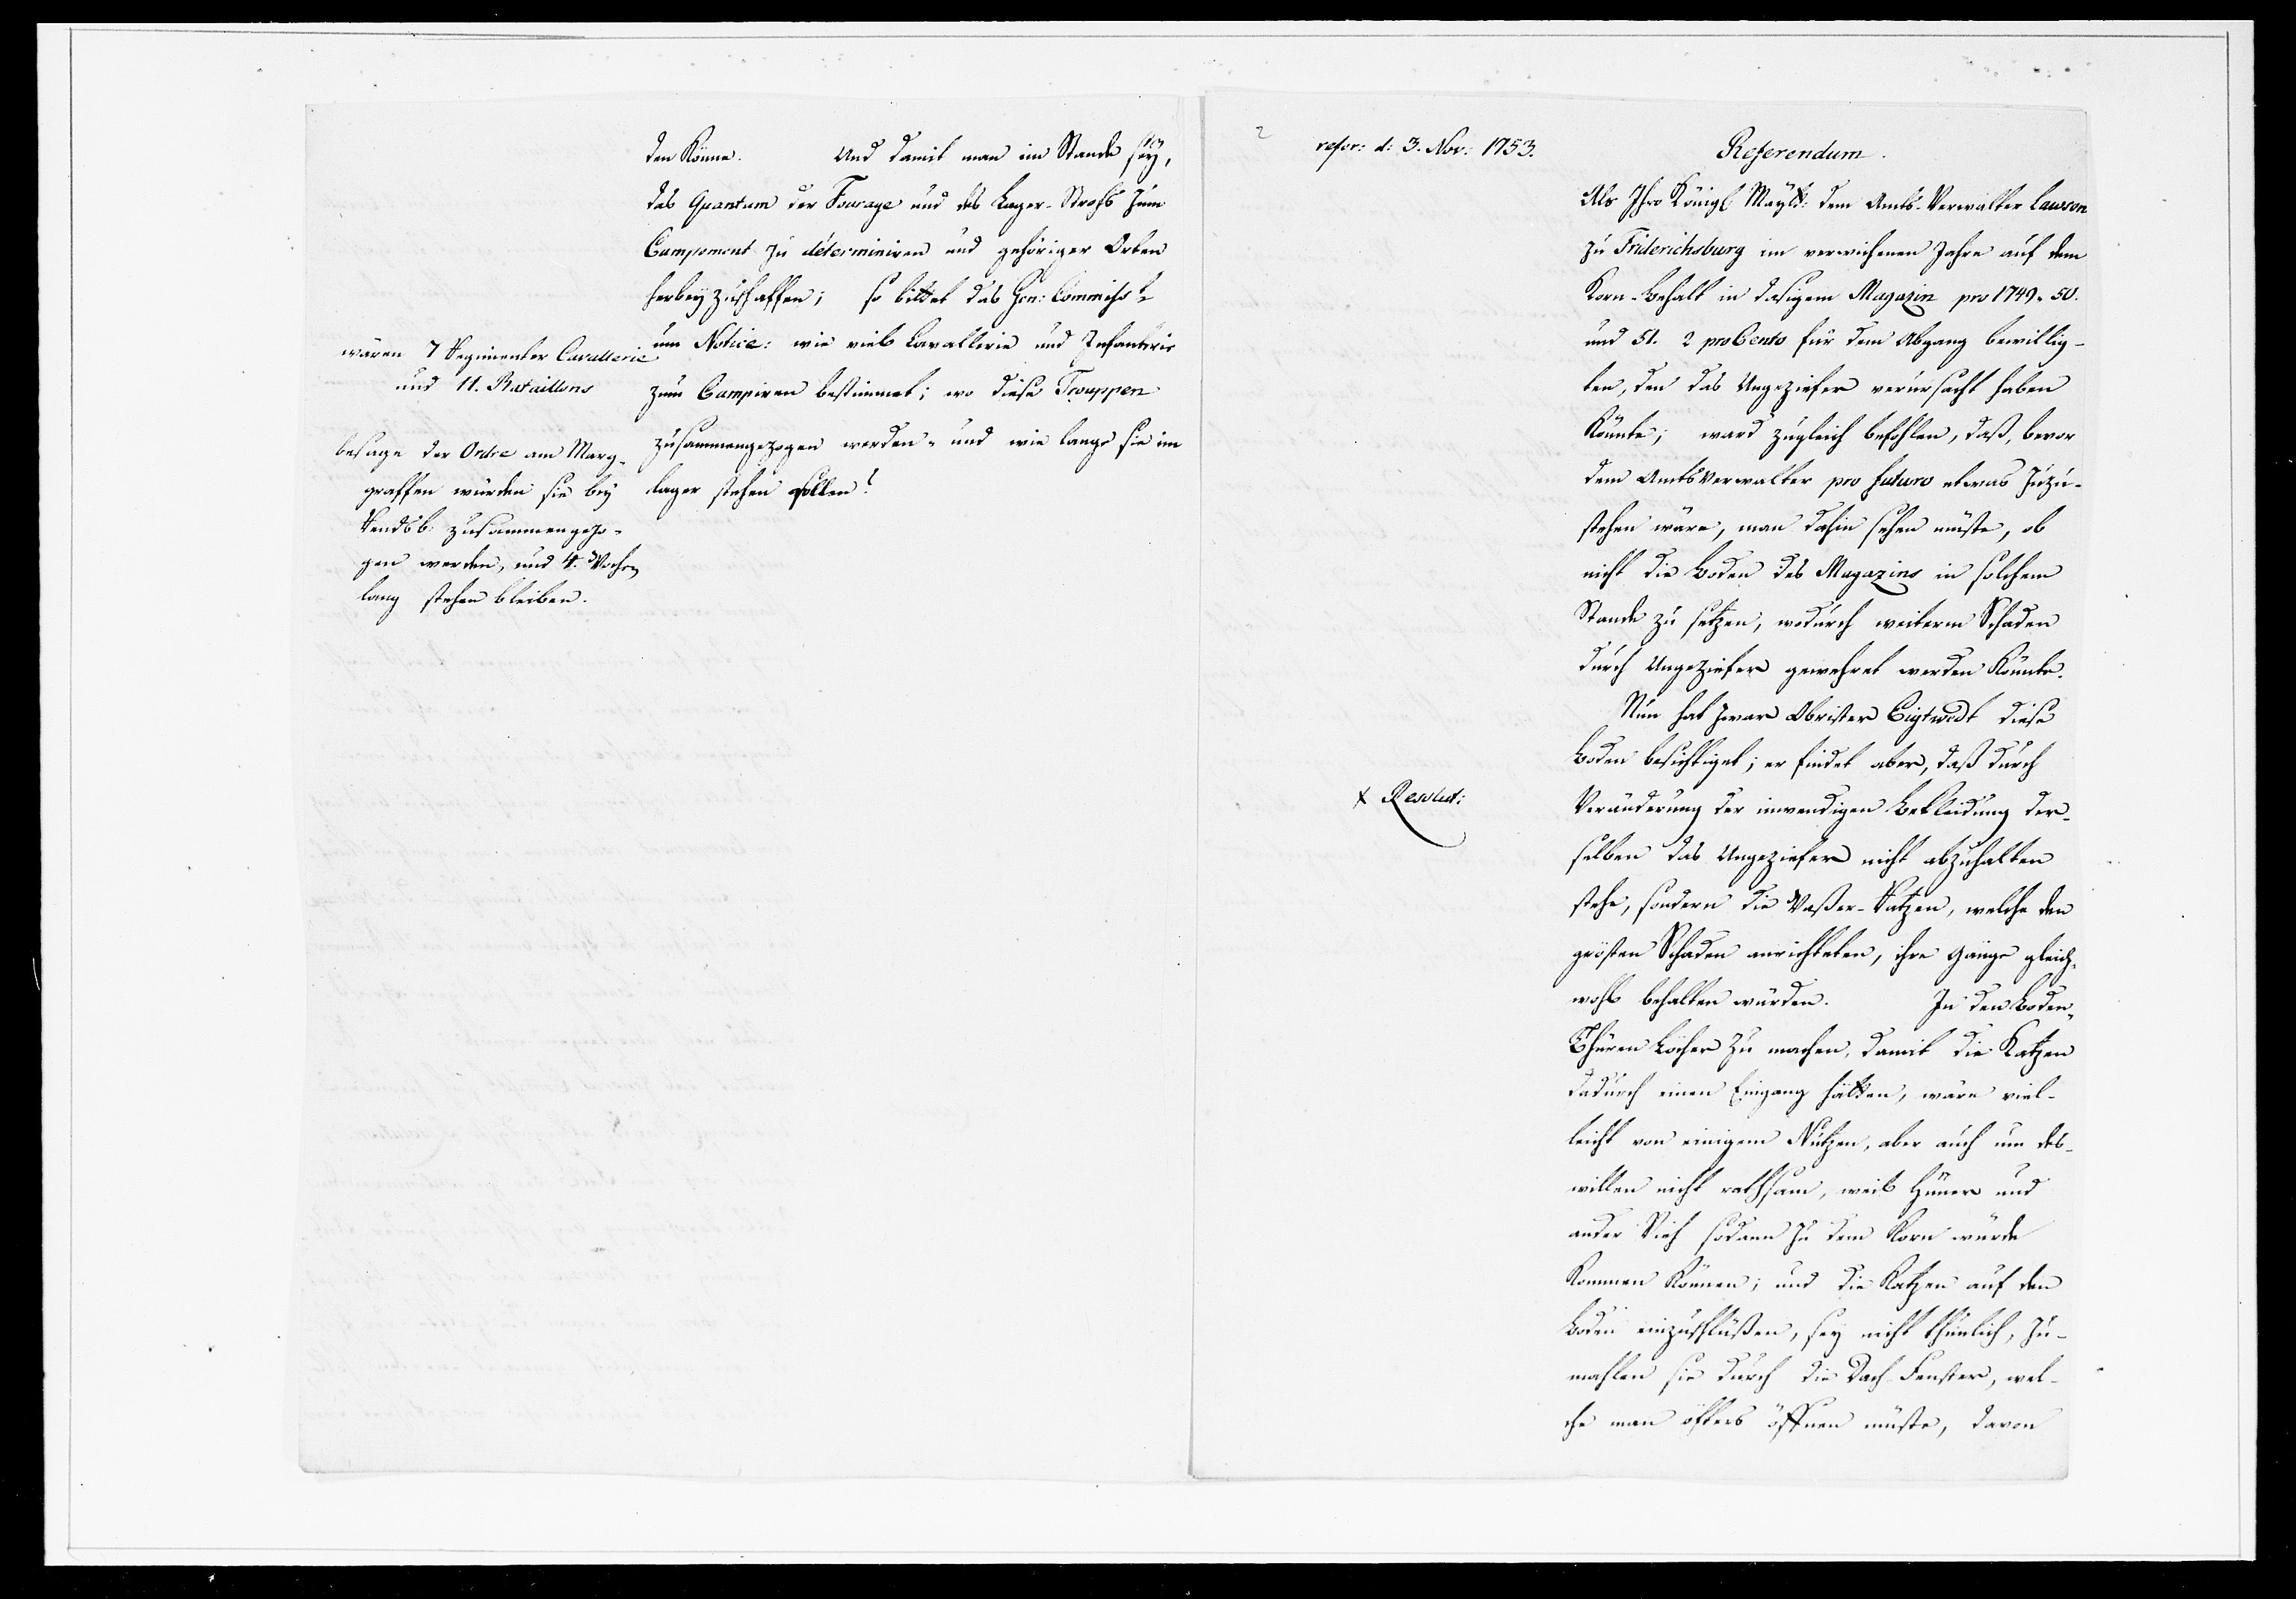 den könne. Und damit man im Stande seÿ,
das Quantum der Fourage und des Lager-Strohs zum
Campement zu déterminiren und gehöriger Orten
herbeyzuschaffen; so bittet das Gen: Commiss:
um Notice: wie viel Cavallerie und Infanterie
zum Campiren bestimmet; wo diese Trouppen
zusammengezogen werden- und wie lange sie im
Lager stehen sollen?
wären 7 Regimenter Cavallerie
und 11. Bataillons
besage der Ordre am Marg-
graffen würden sie bey
Rendsb: zusammengezo-
gen werden, und 4. Wochen
lang stehen bleiben.
2
refer: d: 3. Nov: 1753.
Referendum.
Als Ihro Königl: Maytt: dem Amts-Verwalter Lawson
zu Friderichsburg im verwichenen Jahre auf dem
Korn-Behalt in dasigem Magazin pro 1749. 50.
und 51. 2 pro Cento für dem Abgang bewillig-
ten, den das Ungeziefer verursacht haben
könnte; ward zugleich befohlen, daß, bevor
dem Amtsverwalter pro futuro etwas zuzu-
stehen wäre, man dahin sehen müste, ob
nicht die Boden des Magazins in solchem
Stande zu setzen, wodurch weiterm Schaden
durch Ungeziefer gewehret werden könnte.
Nun hat zwar Obrister Eigtwedt diese
Boden besichtiget; er findet aber, daß durch
Veränderung der inwendigen Bekleidung der-
selben das Ungeziefer nicht abzuhalten
stehe, sondern die Waßer-Ratzen, welche den
grösten Schaden anrichteten, ihre Gänge gleich-
wohl behalten würden. In den Boden-
Thüren Löcher zu machen, damit die Katzen
dadurch einen Eingang hätten, wäre viel-
leicht von einigem Nutzen, aber auch um des-
willen nicht rathsam, weil Hüner und
ander Vieh sodann zu dem Korn würde
kommen können; und die Katzen auf den
Boden einzuschlüßen, sey nicht thunlich, zu-
mahlen sie durch die Dach-Fenster, wel-
che man öffters öffnen müste, davon
x Resolut: